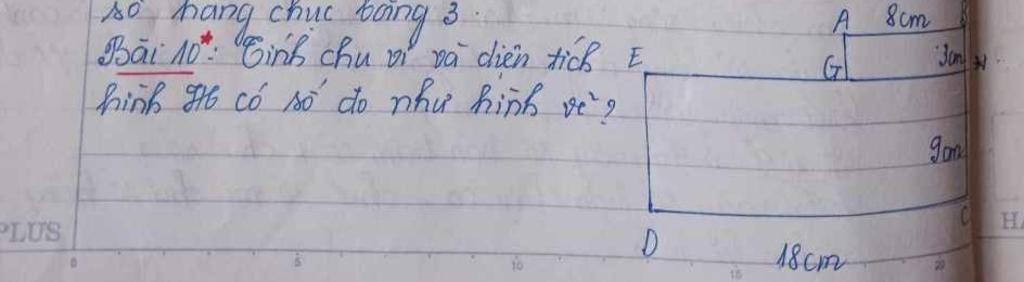 số hàng chục bằng 3.
Bài 10*: Tính chu vi và diện tích
hình H6 có số đo như hình vẽ?
A 8cm B
E G 3cm H
9cm
D 18cm C
PLUS
0 5 10 15 20
HA